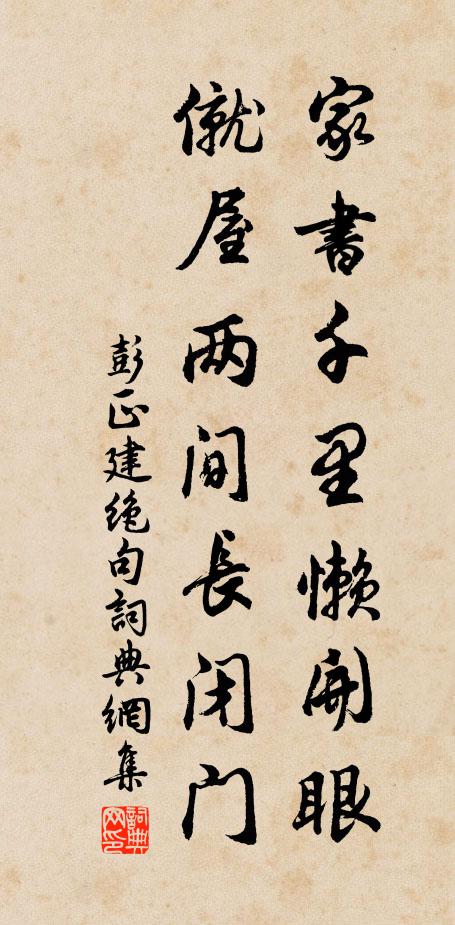 家書千里懶開眼
僦屋兩間長閉門
彭正建絶句詞典網集
詞典網印